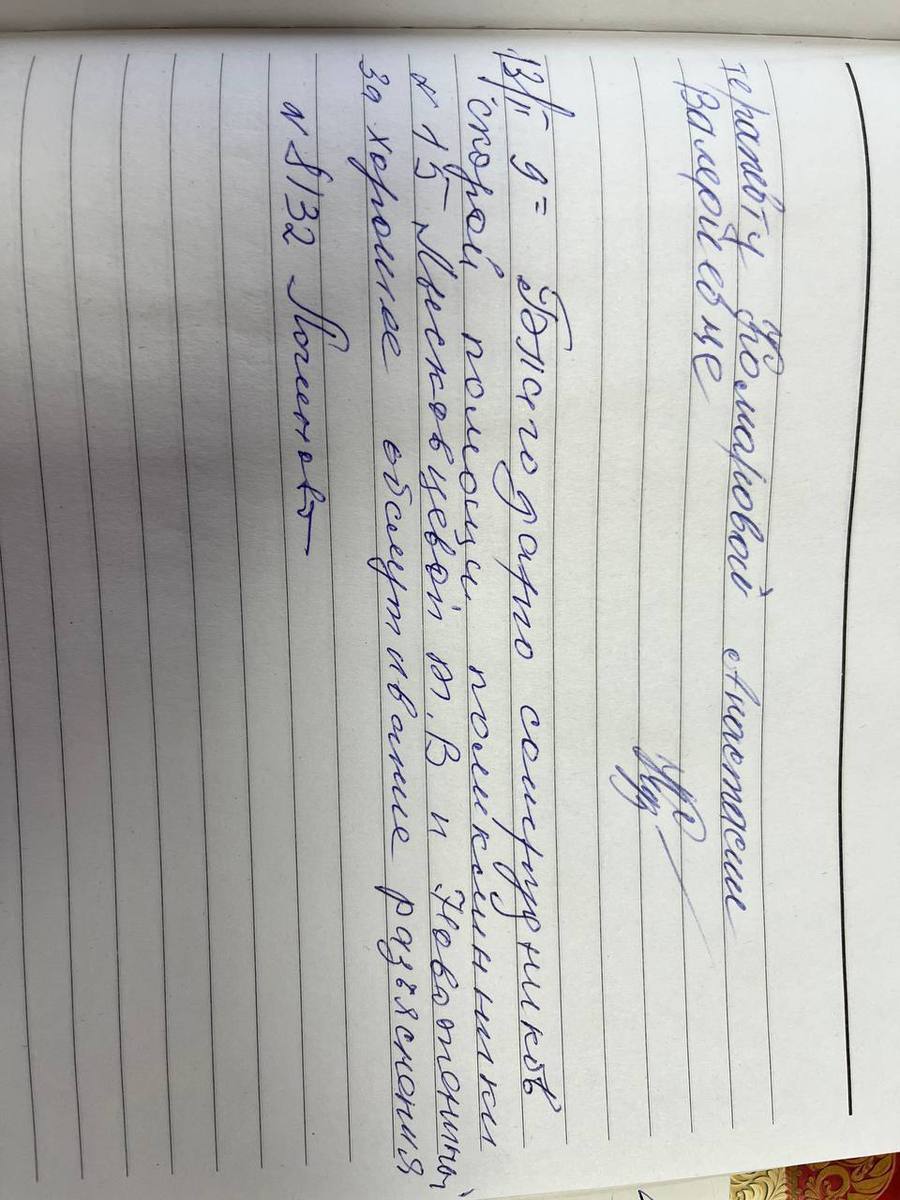 терапевту Комаровой Анастасии
Валерьевне
13/II Благодарю сотрудников
скорой помощи поликлиники
N 15 Лысковцевой Т.В и
за хорошее обслуживание разъяснения
N 8132